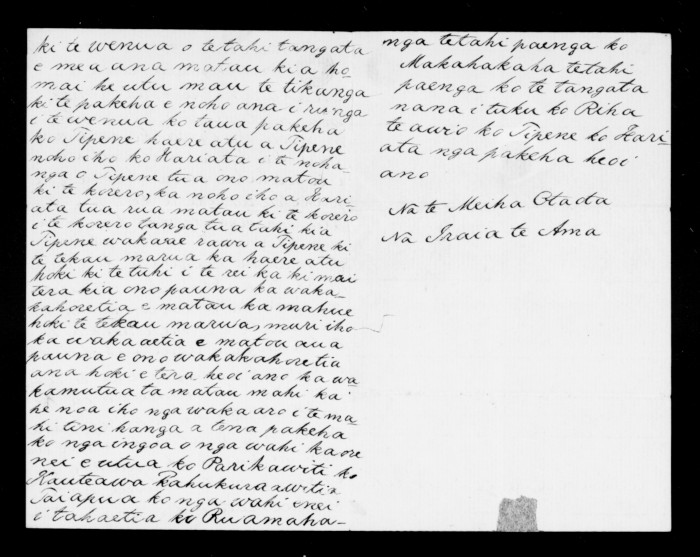 ki te wenua o te tahi tangata
e mea ana matau kia ho-
mai he utu mau te tikanga
ki te pakeha e noho ana i runga
i te wenua ko taua pakeha
ko Tipene haere atu a Tipene
noho iho ko Hariata i te noha-
nga o Tipene tua ono matou
ki te korero, ka noho iho a Hari-
ata tua rua matau ki te korero
i te korero tanga tua tahi kia
Tipene wakaae rawa a Tipene ki
te tekau marua ka haere atu
hoki ki te tahi i te rei ka ki mai
tera kia ono pauna ka waka-
kahoretia e matau ka mahue
hoki te tekau marua, muri iho
ka wakaaetia e matou aua
pauna e ono wakakahoretia
ana hoki e tera heoi ano ka wa
kamutua ta matau mahi ka
he noa iho nga wakaaro i te ma-
hi tini hanga a tena pakeha
ko nga ingoa o nga wahi kaore
nei e utua ko Parikawiti ko
Kauteawa Kahukura awitia
Taiapua ko nga wahi enei
i tahaetia ko Ruamaha-
nga tetahi paenga ko
Makahakaha tetahi
paenga ko te tangata
nana i taku ko Riha
te auro ko Tipene ko Hari-
ata nga pakeha heoi
ano
Na te Meiha Otaota
Na Iraia te Ama